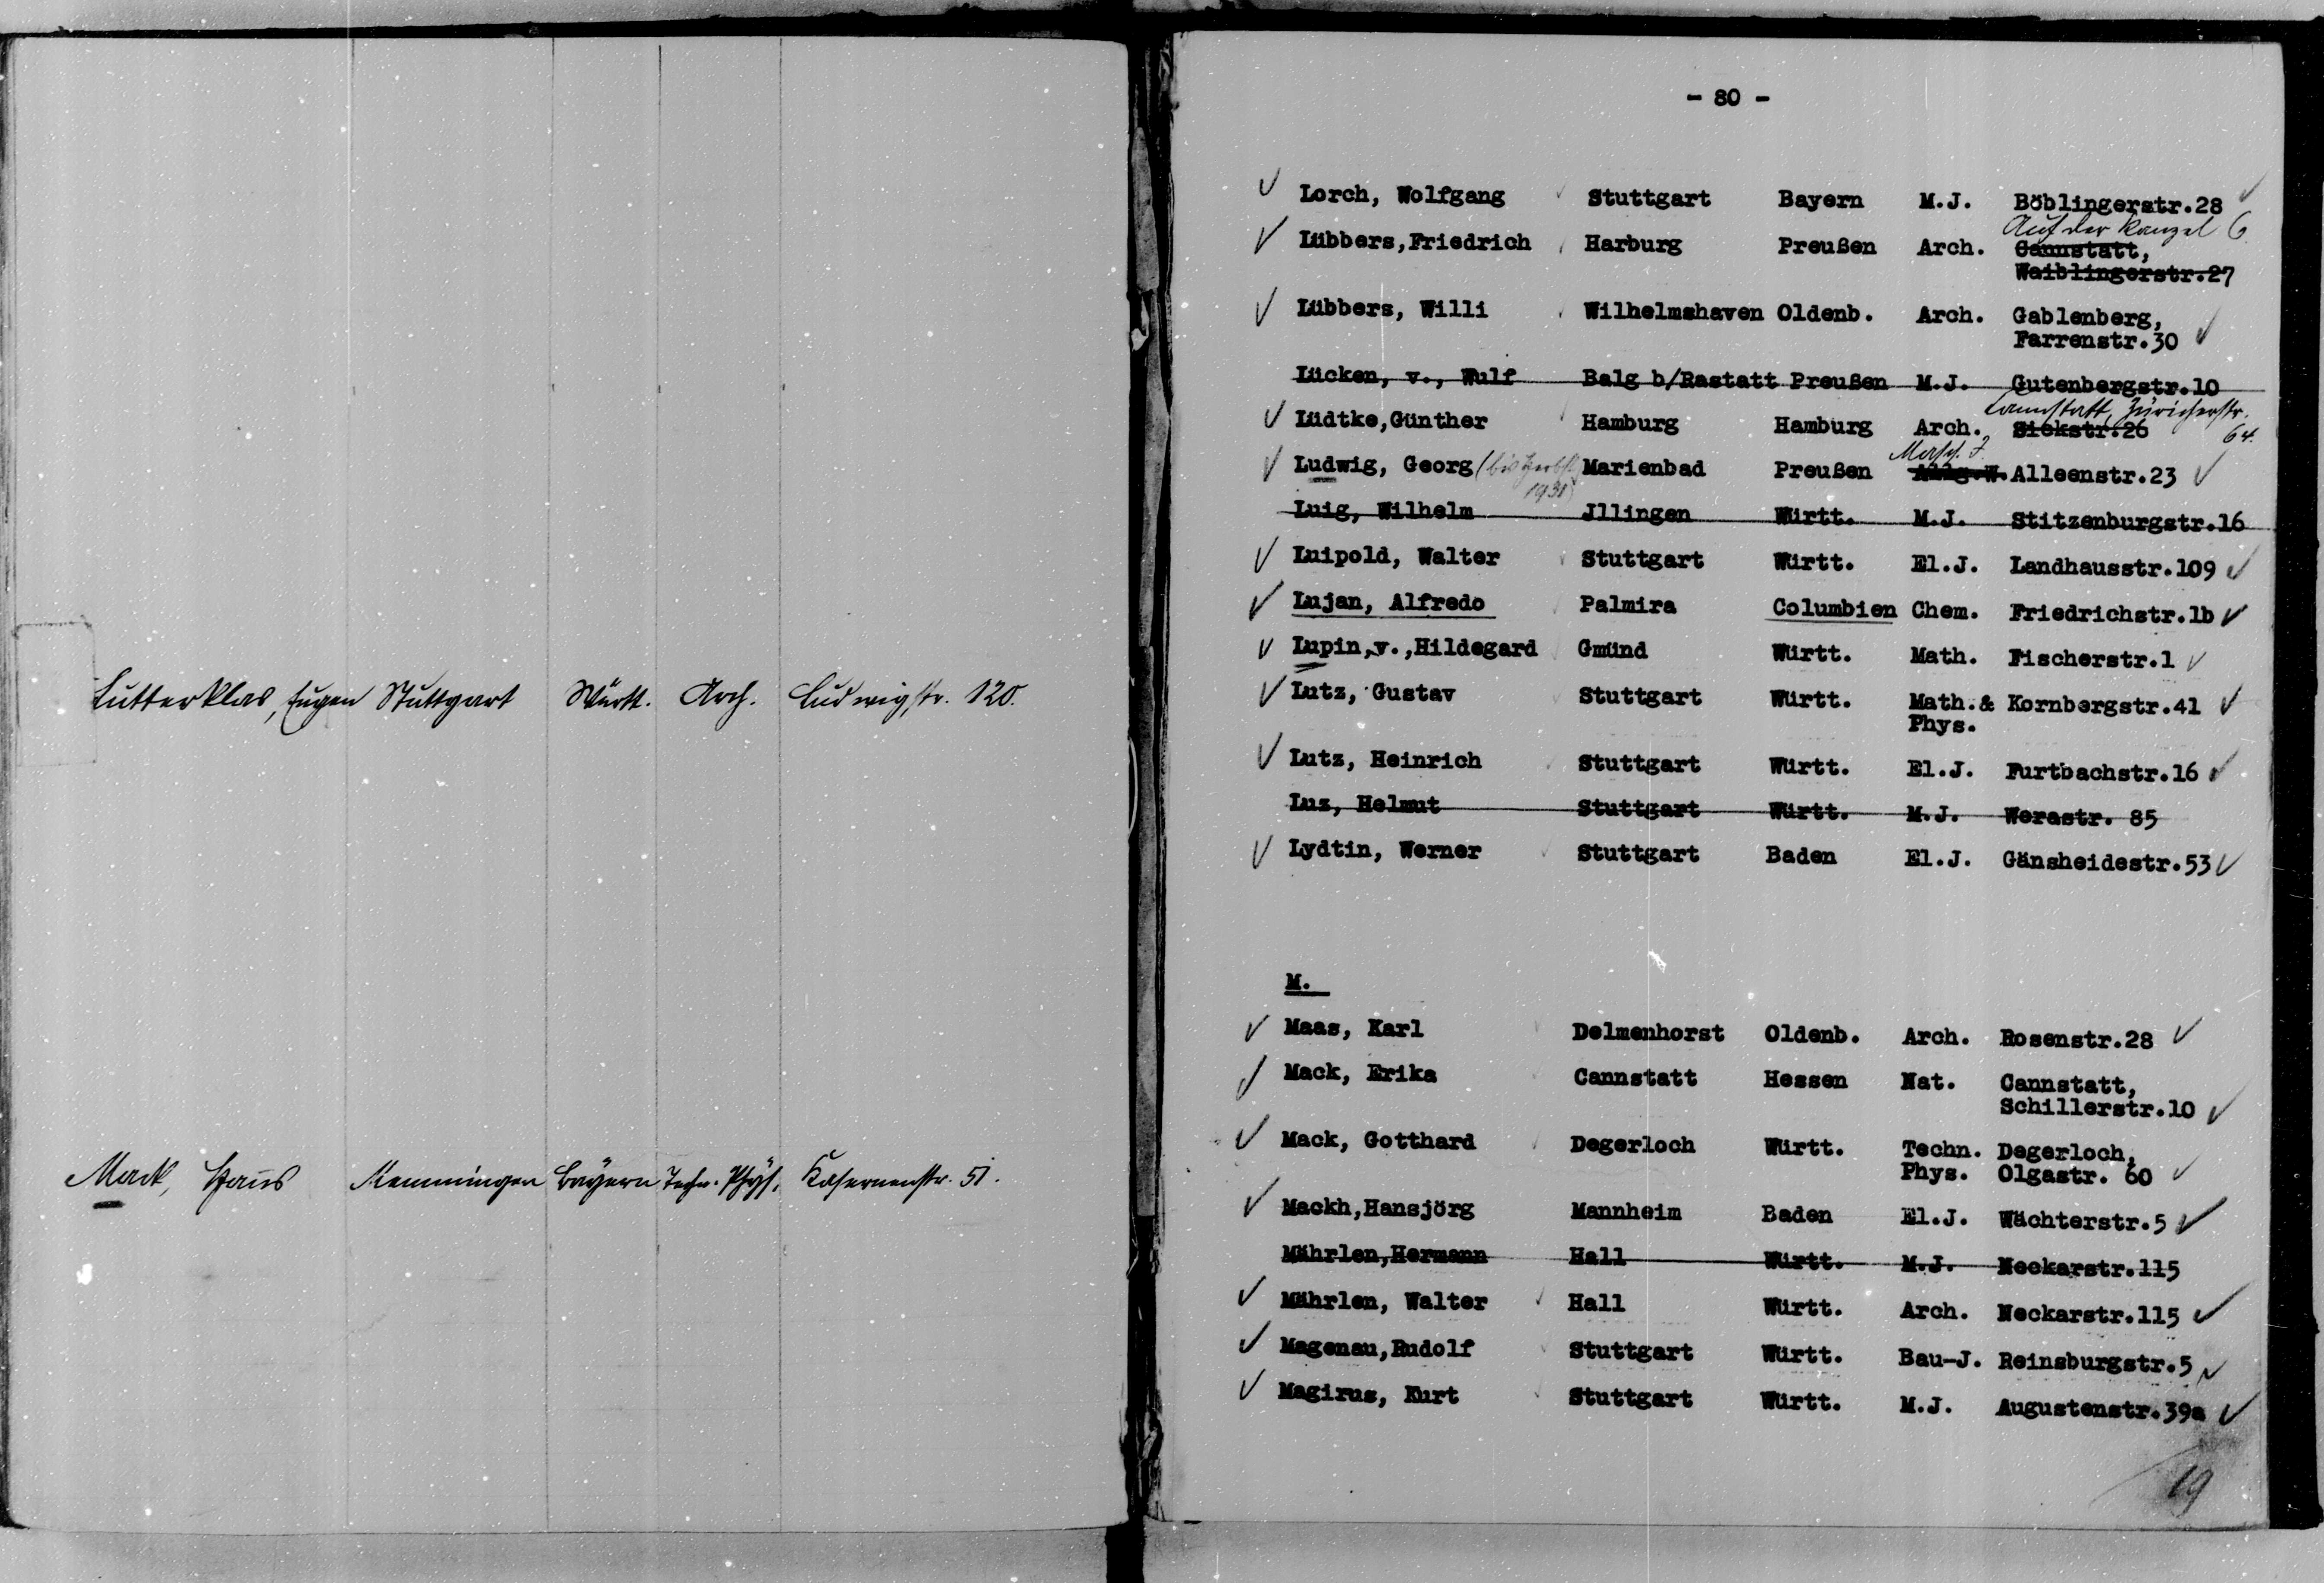 Lutterklas, Eugen Stuttgart Württ. Arch. Ludwigstr. 120.
Mack, Hans Memmingen Bayern Techn. Phys. Kasernenstr. 51.
- 80 -
Lorch, Wolfgang Stuttgart Bayern M.J. Böblingerstr.28
Auf der Kanzel 6
Lübbers,Friedrich Harburg Preußen Arch. Cannstatt,
Waiblingerstr.27
Lübbers, Willi Wilhelmshaven Oldenb. Arch. Gablenberg,
Farrenstr.30
Lücken, v., Wulf Balg b/Rastatt Preußen M.J. Gutenbergstr.10
Cannstatt, Züricherstr.
64.
Lüdtke,Günther Hamburg Hamburg Arch. Sickstr.26
Masch. J.
Ludwig, Georg (bis Herbst Marienbad Preußen Allg.W. Alleenstr.23
1931)
Luig, Wilhelm Jllingen Württ. M.J. Stitzenburgstr.16
Luipold, Walter Stuttgart Württ. El.J. Landhausstr.109
Lujan, Alfredo Palmira Columbien Chem. Friedrichstr.1b
Lupin,v.,Hildegard Gmünd Württ. Math. Fischerstr.1
Lutz, Gustav Stuttgart Württ. Math.& Kornbergstr.41
Phys.
Lutz, Heinrich Stuttgart Württ. El.J. Furtbachstr.16
Luz, Helmut Stuttgart Württ. M.J. Werastr. 85
Lydtin, Werner Stuttgart Baden El.J. Gänsheidestr.53
M.
Maas, Karl Delmenhorst Oldenb. Arch. Rosenstr.28
Mack, Erika Cannstatt Hessen Nat. Cannstatt,
Schillerstr.10
Mack, Gotthard Degerloch Württ. Techn. Degerloch,
Phys. Olgastr. 60
Mackh,Hansjörg Mannheim Baden El.J. Wächterstr.5
Mährlen,Hermann Hall Württ. M.J. Neckarstr.115
Mährlen, Walter Hall Württ. Arch. Neckarstr.115
Magenau,Rudolf Stuttgart Württ. Bau-J. Reinsburgstr.5
Magirus, Kurt Stuttgart Württ. M.J. Augustenstr.39a
19